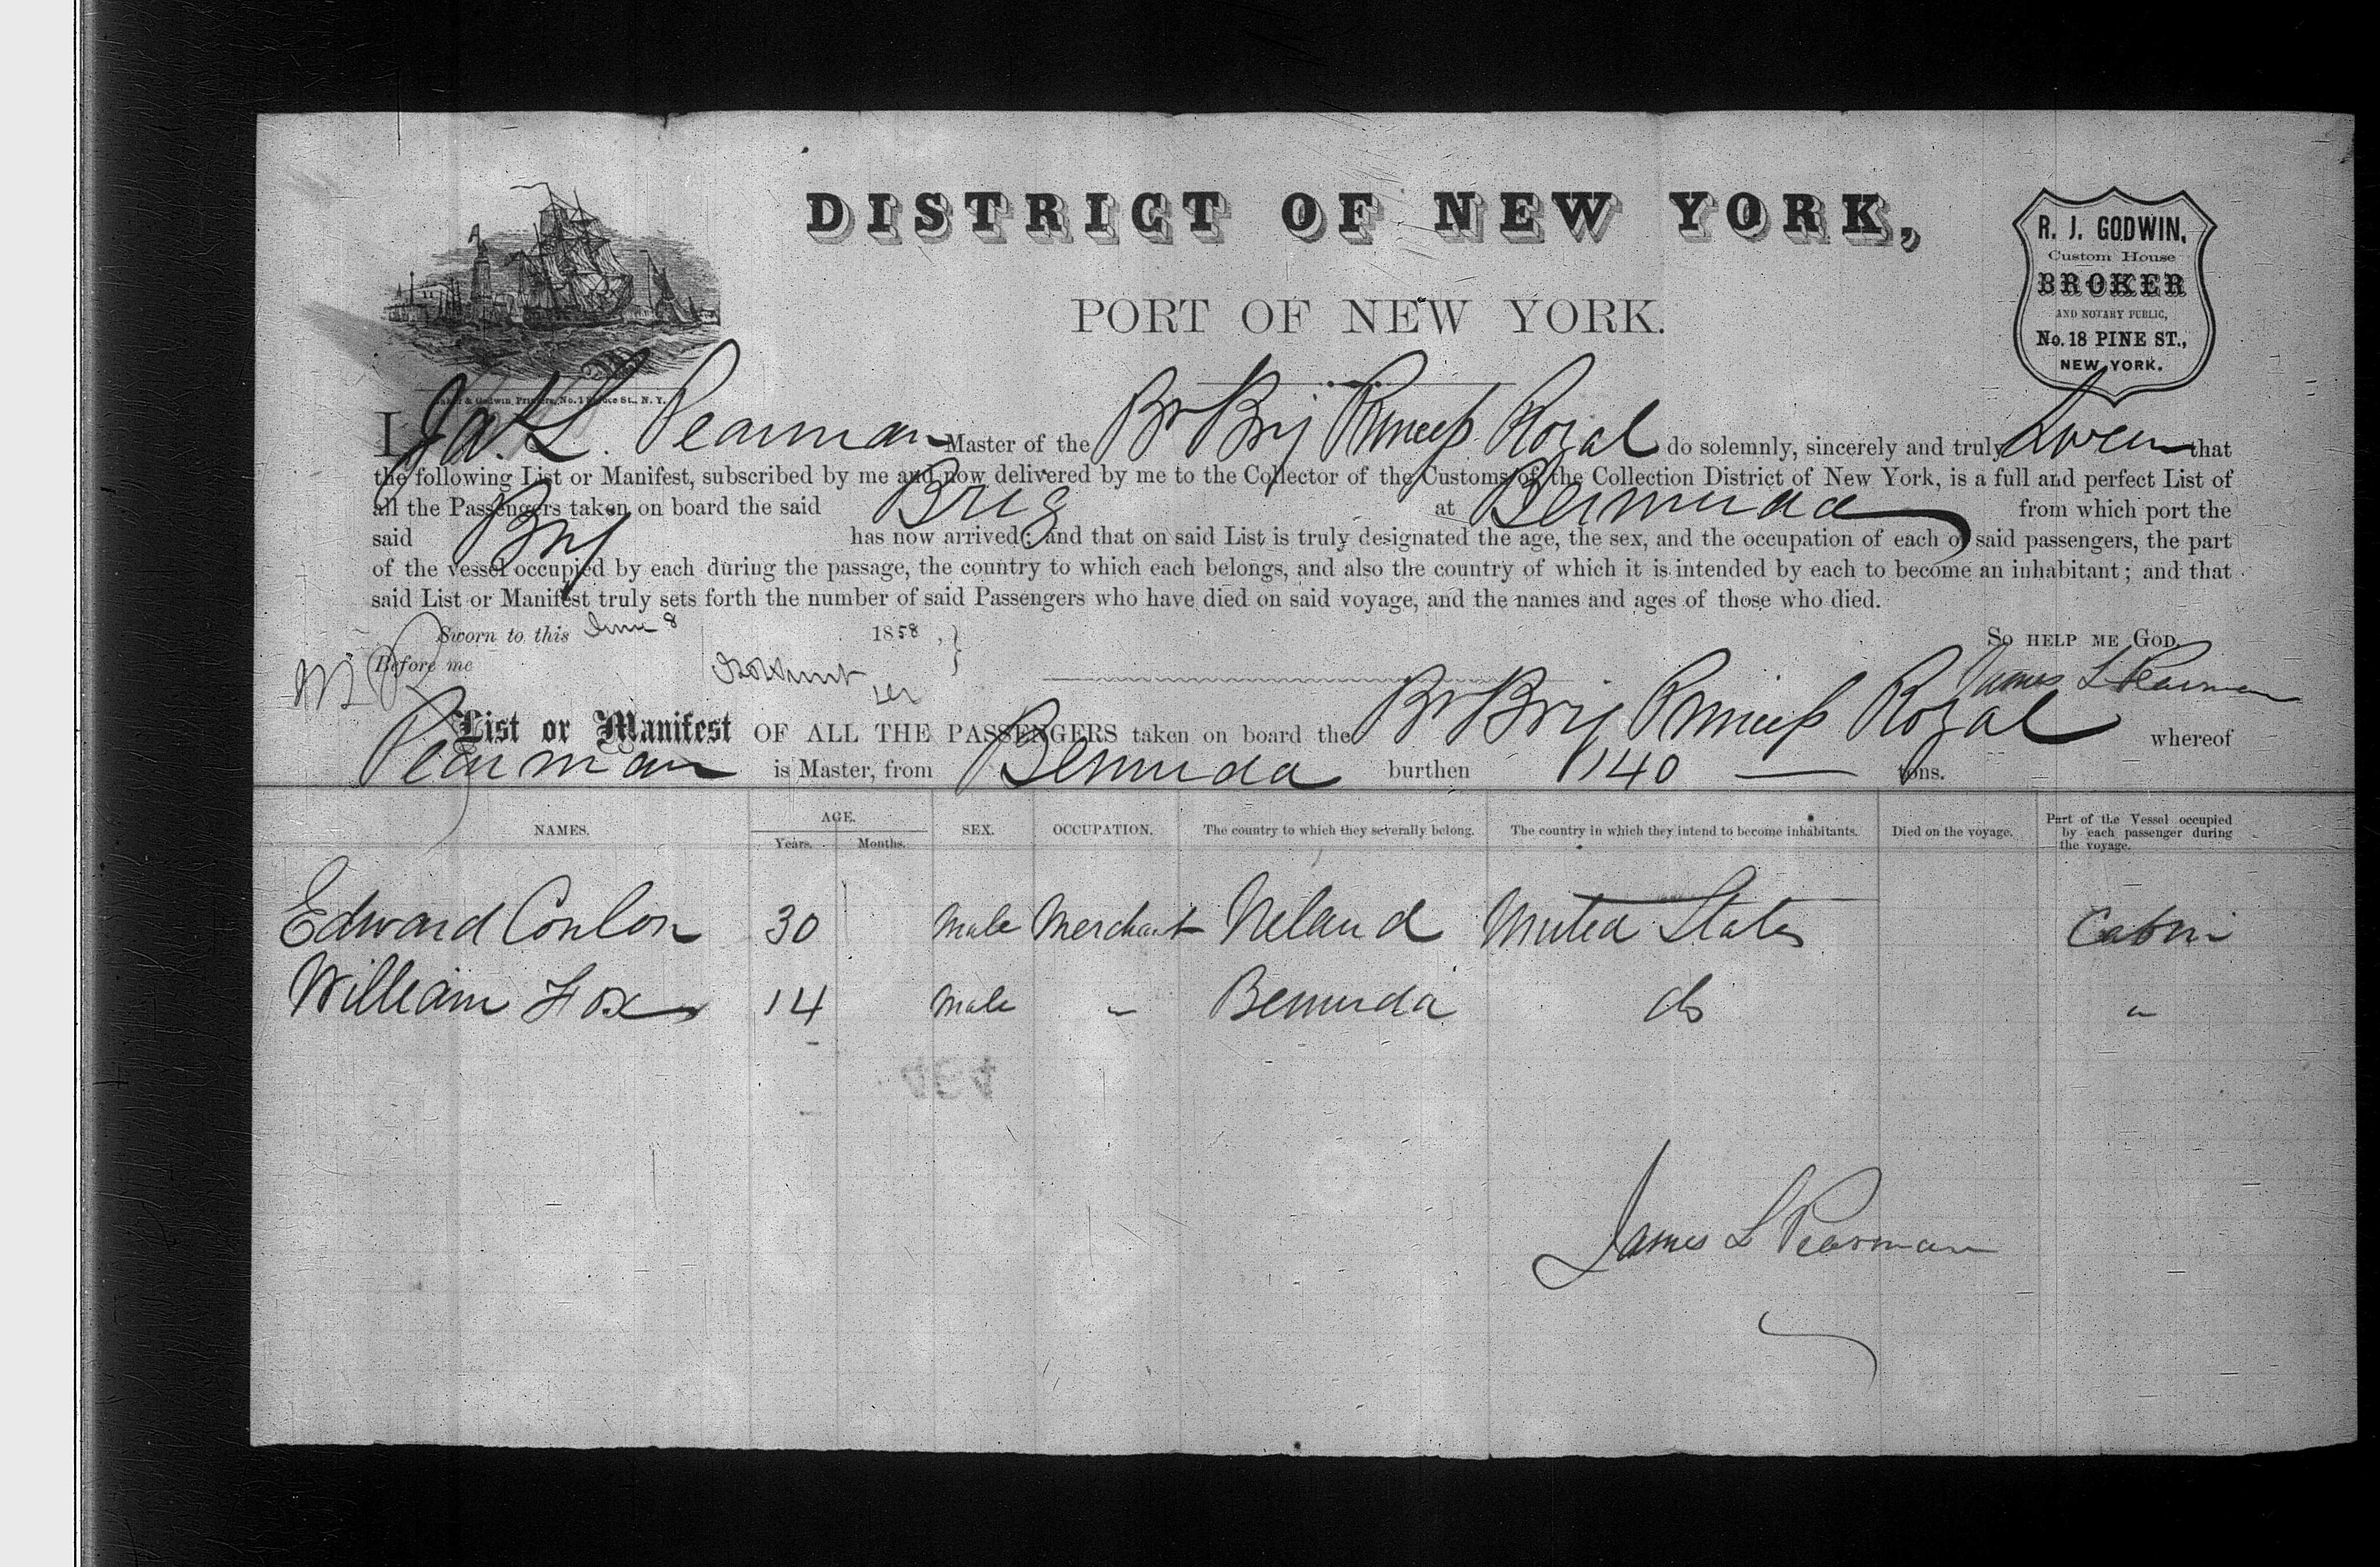 DISTRICT OF NEW YORK,
PORT OF NEW YORK.
R. J. GODWIN,
Custom House
BROKER
AND NOTARY PUBLIC,
No. 18 PINE ST.,
NEW YORK.
Baker & Godwin, Printers, No. 1 Spruce St., N. Y.
I Jas. L. Pearman Master of the Br Brig Princess Royal do solemnly, sincerely and truly Swear that
the following List or Manifest, subscribed by me and now delivered by me to the Collector of the Customs of the Collection District of New York, is a full and perfect List of
all the Passengers taken on board the said Brig at Bermuda from which port the
said Brig has now arrived; and that on said List is truly designated the age, the sex, and the occupation of each of said passengers, the part
of the vessel occupied by each during the passage, the country to which each belongs, and also the country of which it is intended by each to become an inhabitant; and that
said List or Manifest truly sets forth the number of said Passengers who have died on said voyage, and the names and ages of those who died.
Sworn to this June 8 1858, } So HELP ME GOD.
Before me James L Pearman
List or Manifest OF ALL THE PASSENGERS taken on board the Br Brig Princess Royal whereof
Pearman is Master, from Bermuda burthen 140 tons.
NAMES. AGE. Years. Months. SEX. OCCUPATION. The country to which they severally belong. The country in which they intend to become inhabitants. Died on the voyage. Part of the Vessel occupied by each passenger during the voyage.
Edward Conlon 30 Male Merchant Ireland United States Cabin
William Fox 14 Male " Bermuda do "
James L Pearman